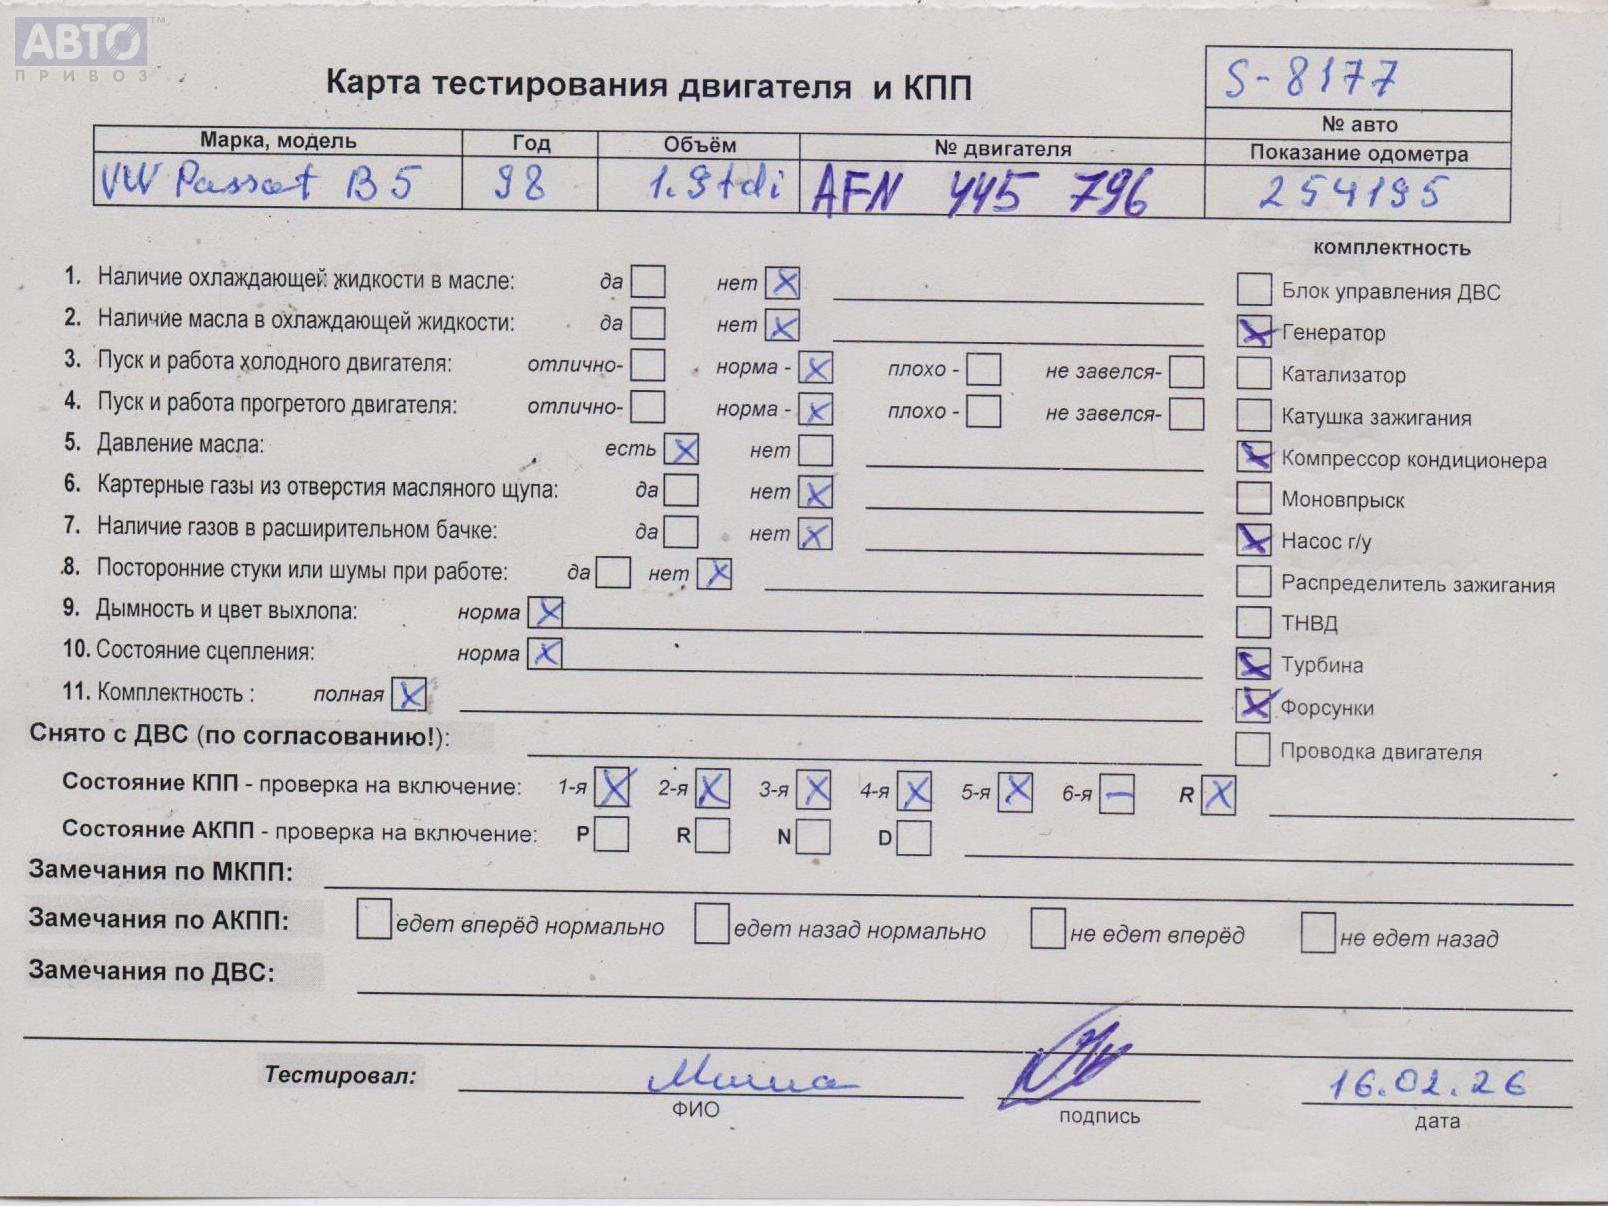 АВТО™
ПРИВОЗ
Карта тестирования двигателя и КПП
S-8177
№ авто
Марка, модель Год Объём № двигателя Показание одометра
VW Passat B5 98 1.9tdi AFN 445 796 254195
комплектность
1. Наличие охлаждающей жидкости в масле: да нет X
2. Наличие масла в охлаждающей жидкости: да нет X
3. Пуск и работа холодного двигателя: отлично- норма - X плохо - не завелся-
4. Пуск и работа прогретого двигателя: отлично- норма - X плохо - не завелся-
5. Давление масла: есть X нет
6. Картерные газы из отверстия масляного щупа: да нет X
7. Наличие газов в расширительном бачке: да нет X
8. Посторонние стуки или шумы при работе: да нет X
9. Дымность и цвет выхлопа: норма X
10. Состояние сцепления: норма X
11. Комплектность : полная X
Блок управления ДВС
X Генератор
Катализатор
Катушка зажигания
X Компрессор кондиционера
Моновпрыск
X Насос г/у
Распределитель зажигания
ТНВД
X Турбина
X Форсунки
Проводка двигателя
Снято с ДВС (по согласованию!):
Состояние КПП - проверка на включение: 1-я X 2-я X 3-я X 4-я X 5-я X 6-я — R X
Состояние АКПП - проверка на включение: P R N D
Замечания по МКПП:
Замечания по АКПП: едет вперёд нормально едет назад нормально не едет вперёд не едет назад
Замечания по ДВС:
Тестировал: Миша 16.02.26
ФИО подпись дата